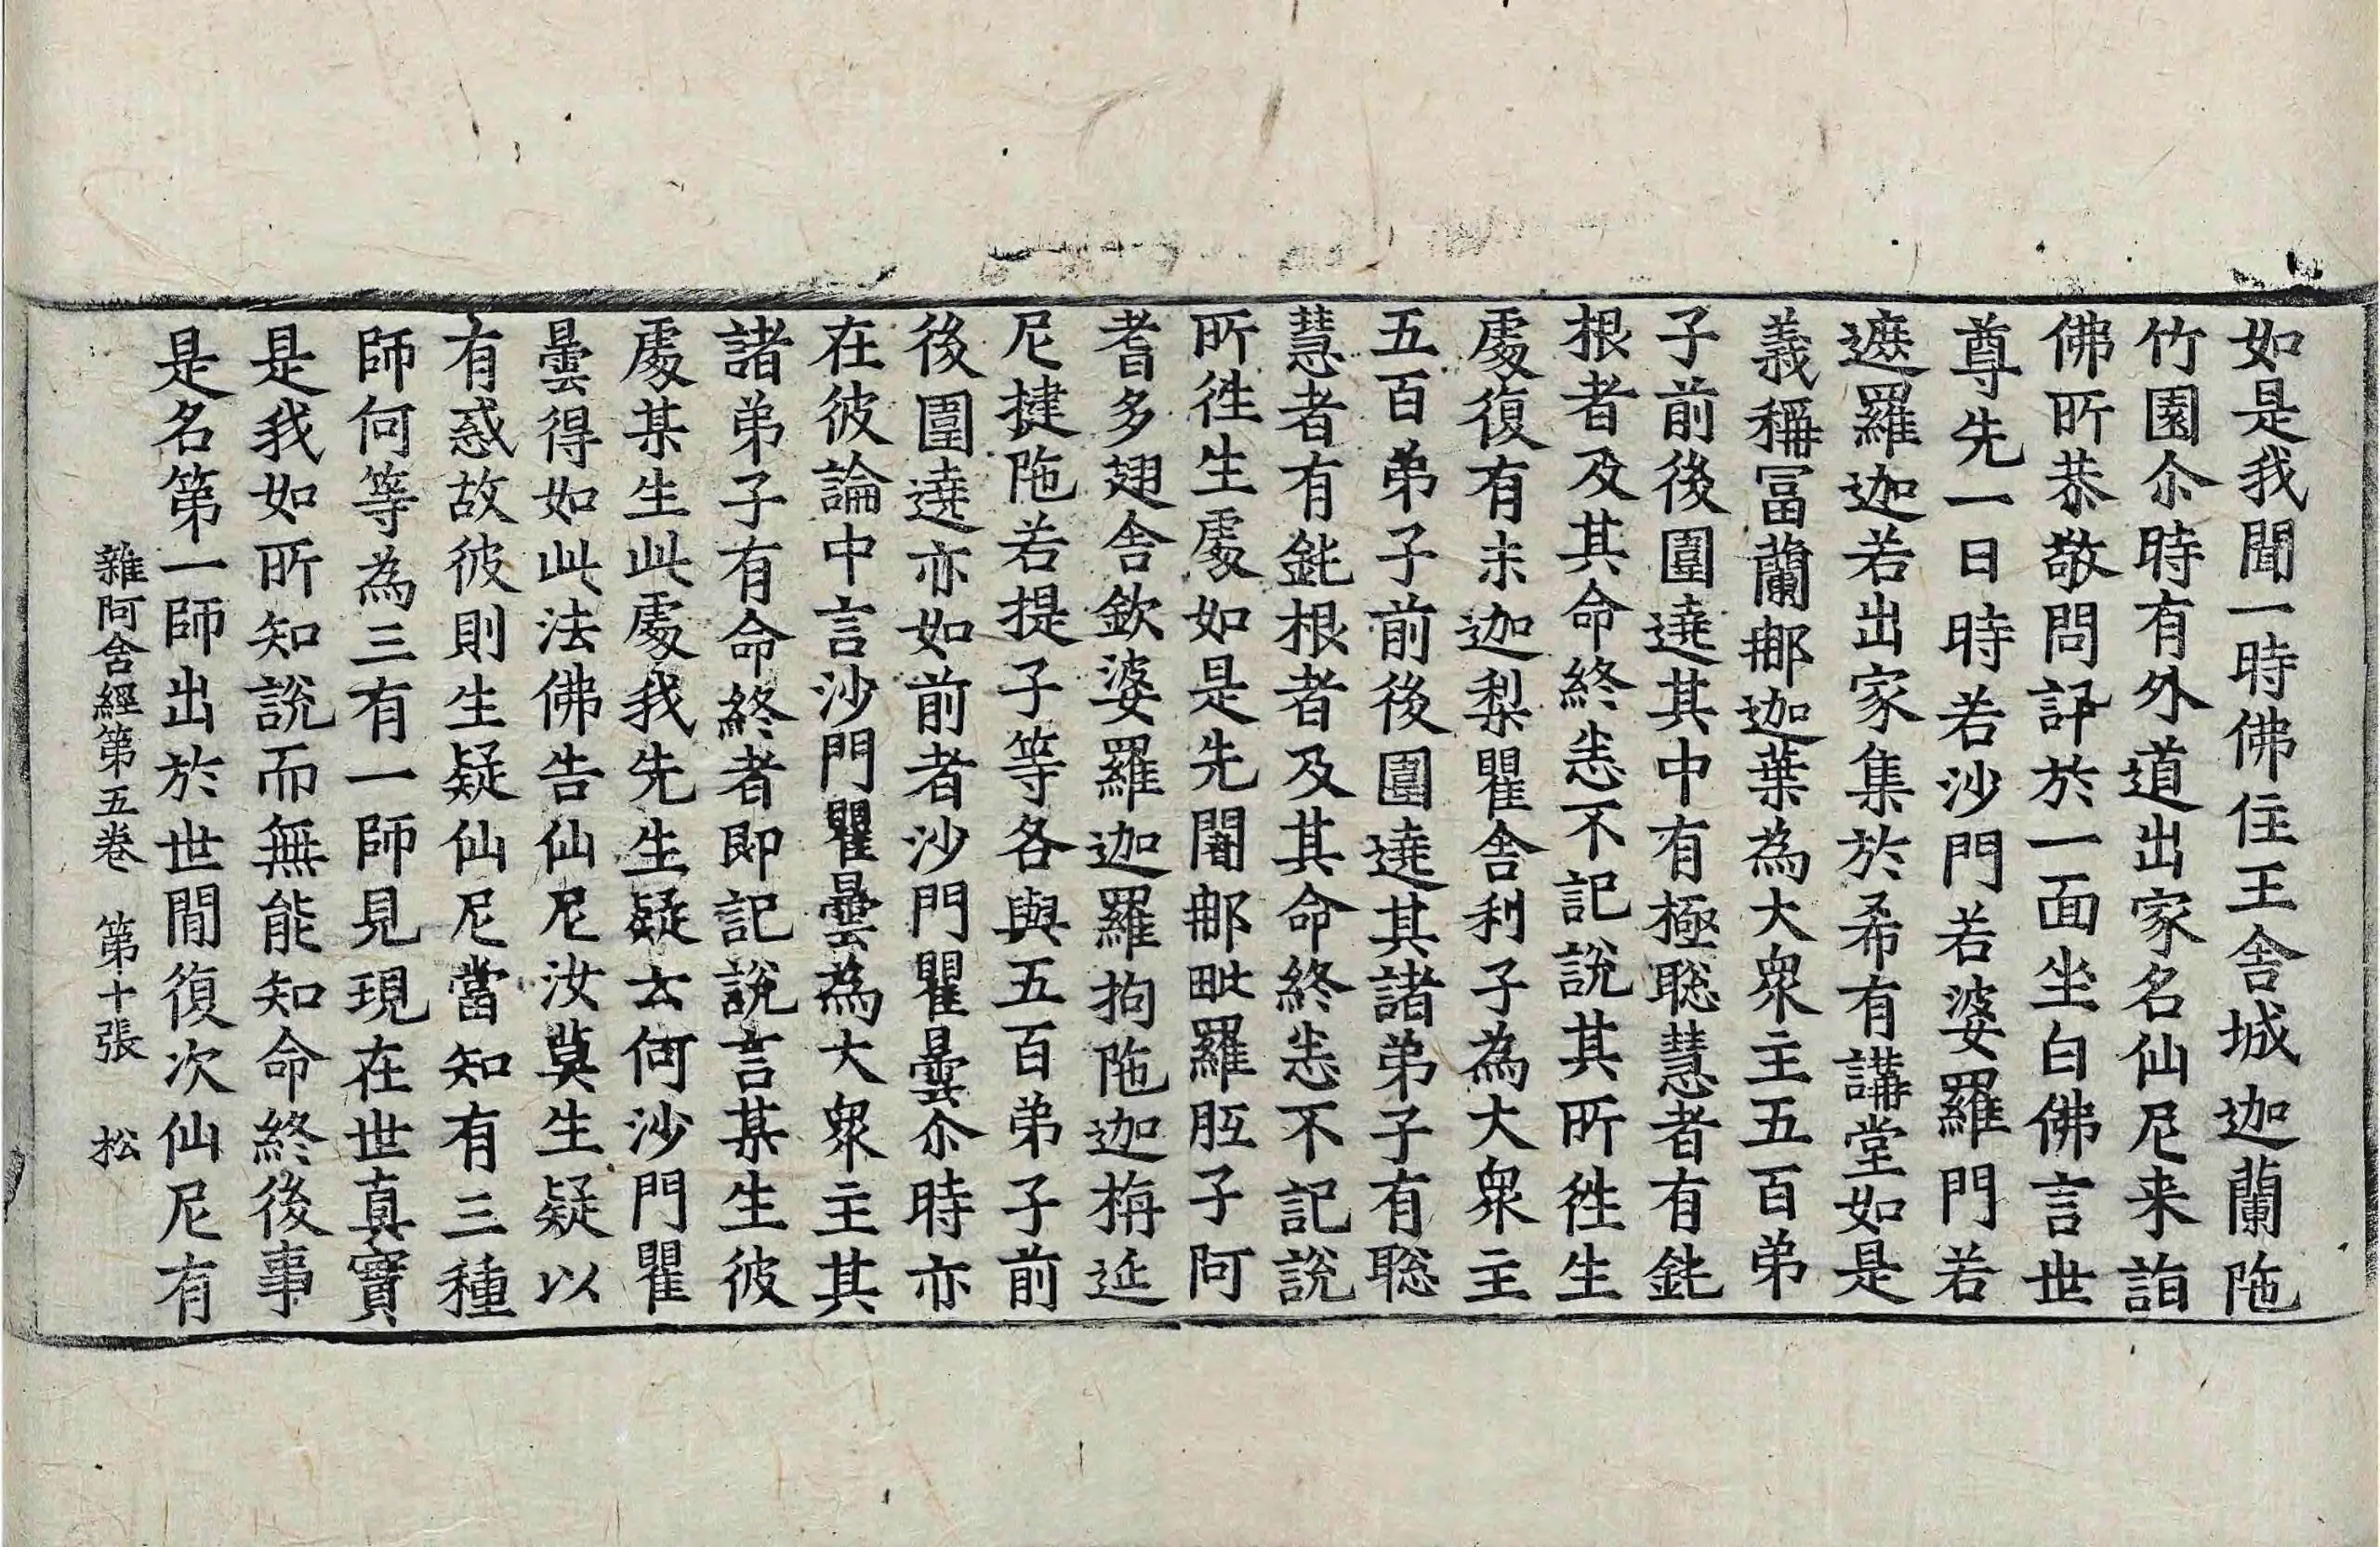 如是我聞一時佛住王舍城迦蘭陁
竹園尒時有外道出家名仙尼来詣
佛所恭敬問訊於一面坐白佛言世
尊先一日時若沙門若婆羅門若
遮羅迦若出家集於希有講堂如是
義稱冨蘭郍迦葉為大衆主五百弟
子前後圍遶其中有極聡慧者有鈍
根者及其命終悉不記說其所徃生
處復有末迦梨瞿舍利子為大衆主
五百弟子前後圍遶其諸弟子有聡
慧者有鈍根者及其命終悉不記說
所徃生處如是先闍郍毗羅胝子阿
耆多翅舍欽婆羅迦羅拘陁迦栴延
尼揵陁若提子等各與五百弟子前
後圍遶亦如前者沙門瞿曇尒時亦
在彼論中言沙門瞿曇為大衆主其
諸弟子有命終者即記說言某生彼
處某生此處我先生疑云何沙門瞿
曇得如此法佛告仙尼汝莫生疑以
有惑故彼則生疑仙尼當知有三種
師何等為三有一師見現在世真實
是我如所知說而無能知命終後事
是名第一師出於世間復次仙尼有
雜阿含經第五卷 第十張 松